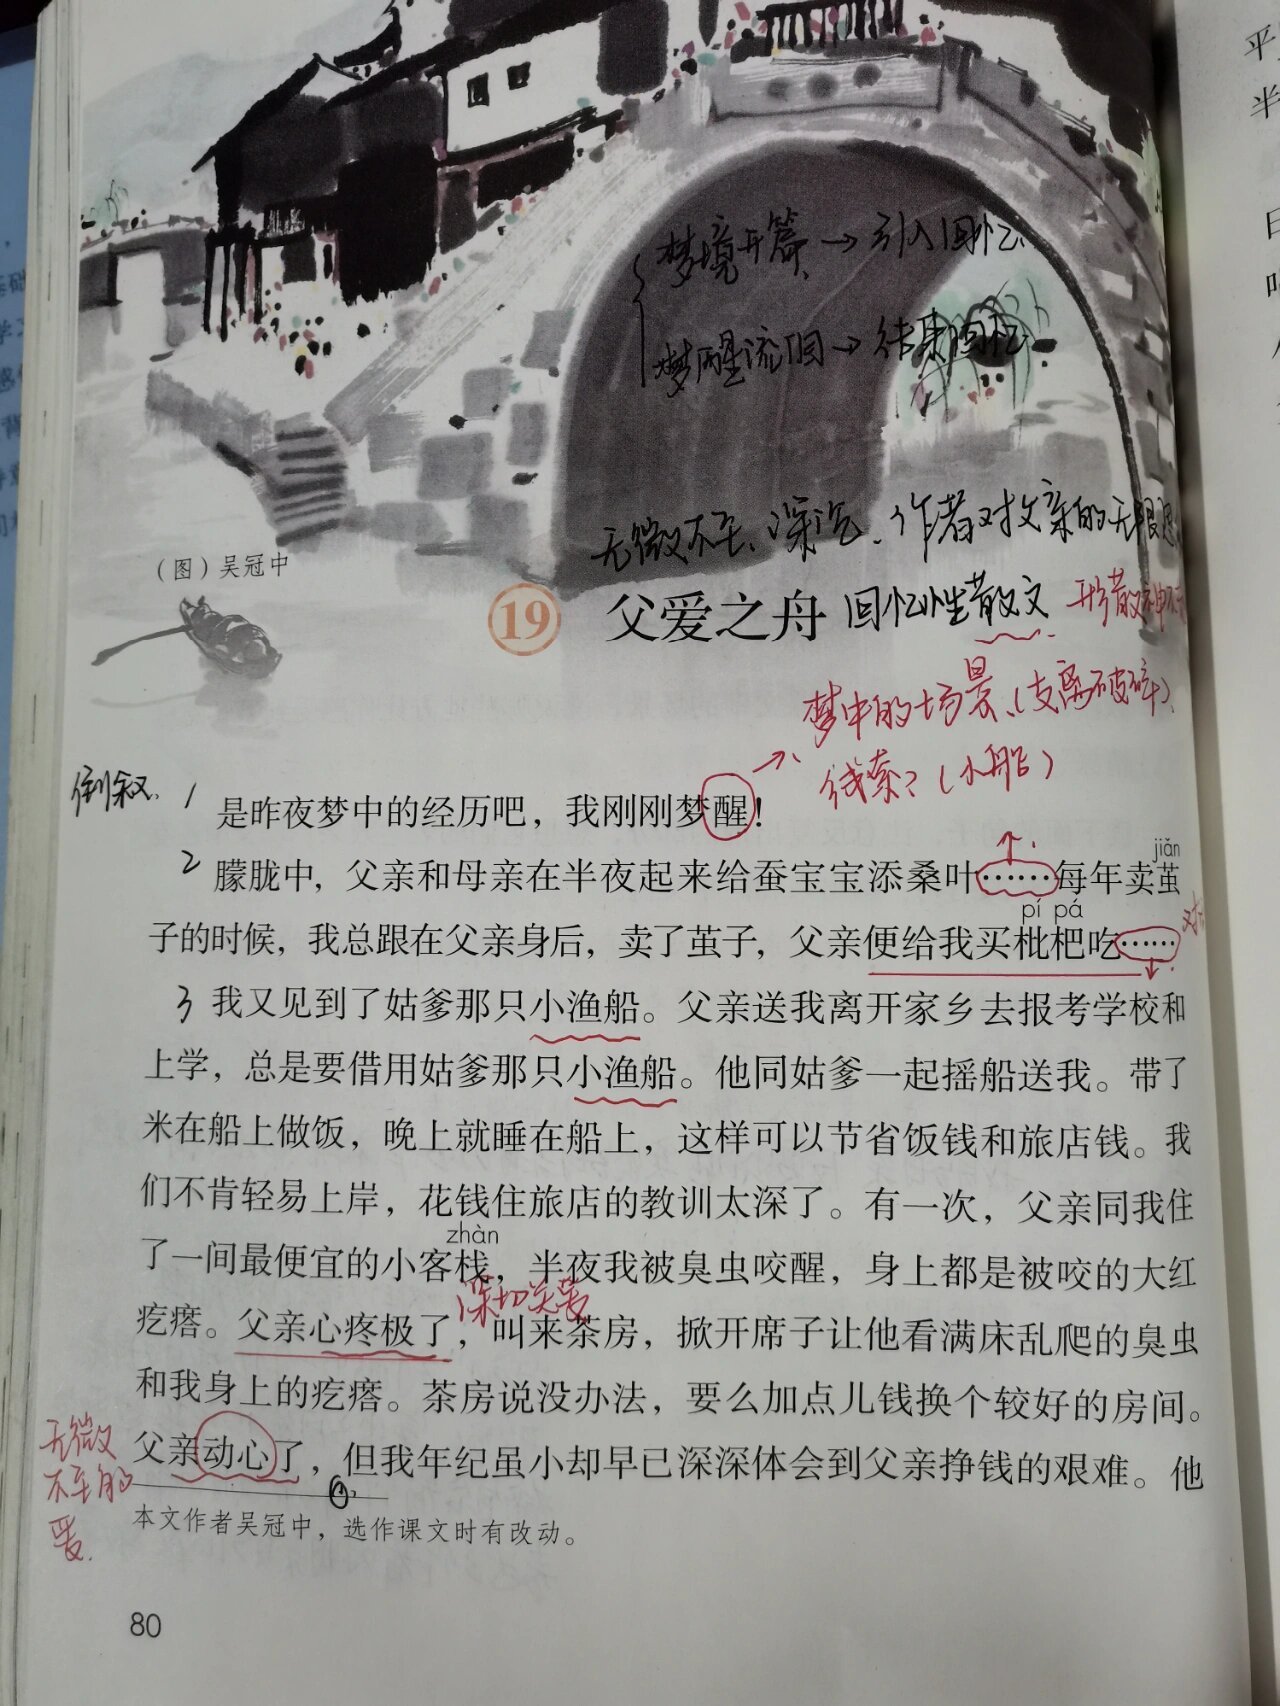 梦境开篇→引入回忆
梦醒流泪→结束回忆
无微不至、深沉、作者对父亲的无限思
(图)吴冠中
19 父爱之舟 回忆性散文 形散神不
梦中的场景、(支离破碎)、
线索:(小船)
倒叙
1 是昨夜梦中的经历吧，我刚刚梦醒！
2 朦胧中，父亲和母亲在半夜起来给蚕宝宝添桑叶……每年卖茧
jiǎn
pí pá
子的时候，我总跟在父亲身后，卖了茧子，父亲便给我买枇杷吃……
3 我又见到了姑爹那只小渔船。父亲送我离开家乡去报考学校和
上学，总是要借用姑爹那只小渔船。他同姑爹一起摇船送我。带了
米在船上做饭，晚上就睡在船上，这样可以节省饭钱和旅店钱。我
们不肯轻易上岸，花钱住旅店的教训太深了。有一次，父亲同我住
zhàn
了一间最便宜的小客栈，半夜我被臭虫咬醒，身上都是被咬的大红
深切关爱
疙瘩。父亲心疼极了，叫来茶房，掀开席子让他看满床乱爬的臭虫
和我身上的疙瘩。茶房说没办法，要么加点儿钱换个较好的房间。
无微
不至的
爱
父亲动心了，但我年纪虽小却早已深深体会到父亲挣钱的艰难。他
本文作者吴冠中，选作课文时有改动。
80